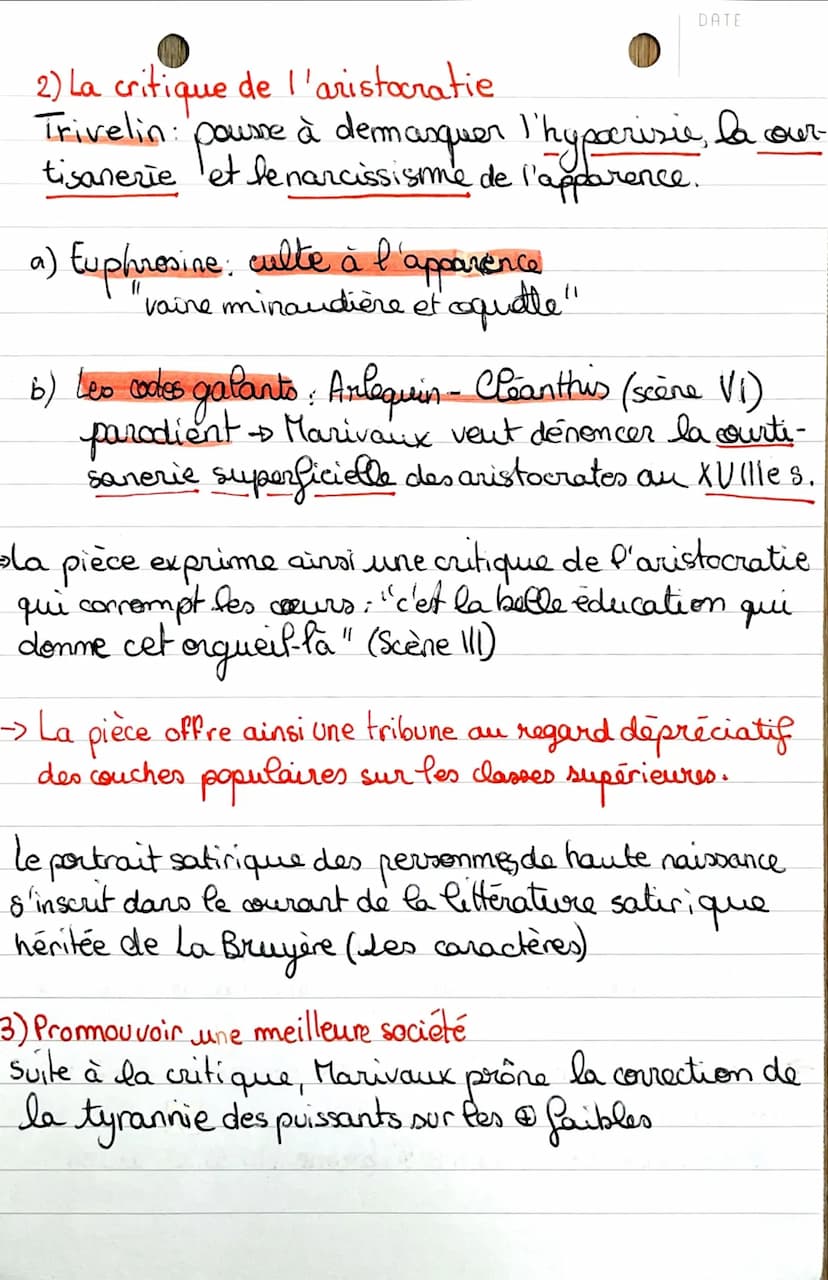 DATE
2) La critique de l'aristocratie
Trivelin : pousse à demasquer l'hypocrisie, la cour-
tisanerie et le narcissisme de l'apparence.
a) Euphrosine : culte à l'apparence
"vaine minaudière et coquette"
b) Les codes galants : Arlequin - Cléanthis (scène VI)
parodient → Marivaux veut dénoncer la courti-
sanerie superficielle des aristocrates au XVIIIe s.
→ La pièce exprime ainsi une critique de l'aristocratie
qui corrompt les cœurs : "c'est la belle éducation qui
donne cet orgueil-là" (Scène III)
→ La pièce offre ainsi une tribune au regard dépréciatif
des couches populaires sur les classes supérieures.
Le portrait satirique des personnes de haute naissance
s'inscrit dans le courant de la littérature satirique
héritée de La Bruyère (Les caractères)
3) Promouvoir une meilleure société
Suite à la critique, Marivaux prône la correction de
la tyrannie des puissants sur les ⊕ faibles